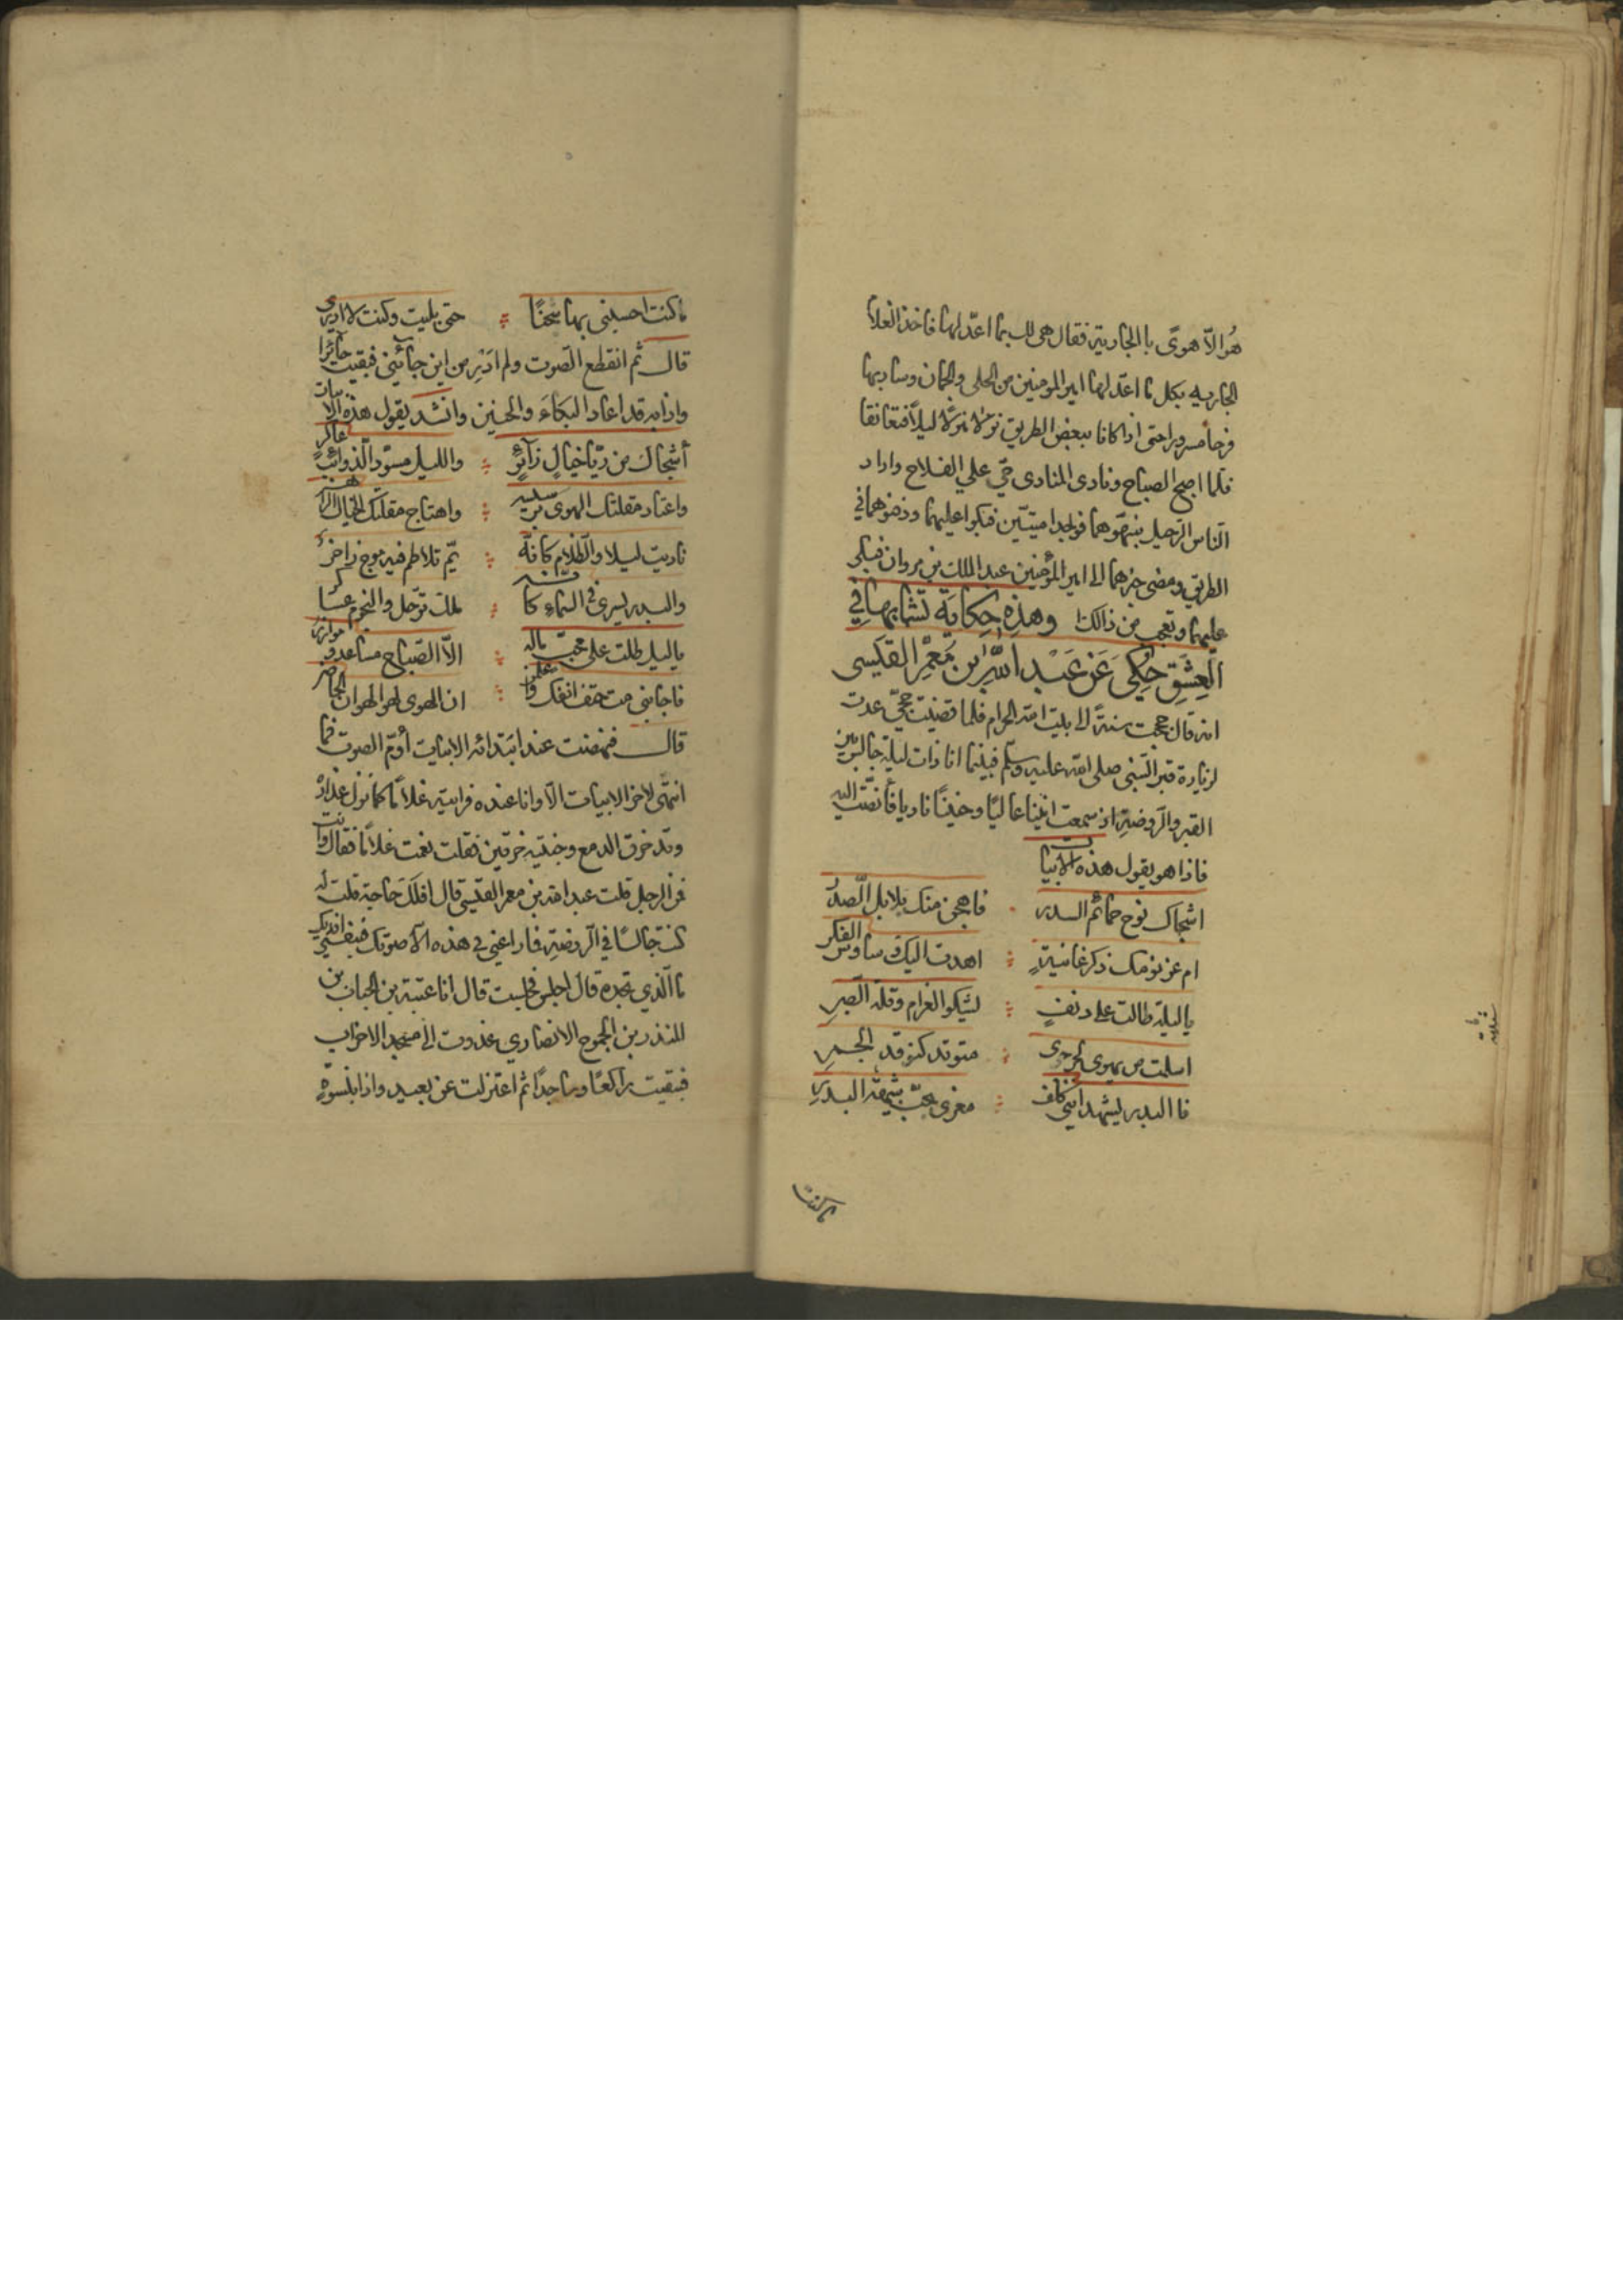 هو الاّ هوىً با الجارية فقال هى لك بما اعدّ لها فاخذ الغلا
الجاريه بكل ما اعدّ لها امير المومنين من الحلى والجمان وسار بها
فرحا مسرورا حتى اذا كانا ببعض الطريق نزلا منزلا ليلاً فتعانقا
فلما اصبح الصباح ونادى المنادى حيّ علي الفلاح واراد
الناس الرّحيل ينبهوهما فوجدا ميتيّن فبكوا عليهما ودفنوهما في
الطريق ومضى خبرهما الى امير المؤمنين عبد الملك بن مروان فبكى
عليهما وتعجب من ذالك وهذه حكاية تشابهها في
العشق حكي عن عبد الله بن معمر القيسى
انه قال حججت سنةً الى بيت الله الحرام فلما قضيت حجّي عدت
لزيارة قبر النّبي صلى الله عليه وسلم فبينما انا ذات ليلة جالس بين
القبر والرّوضة اذ سمعت انينا عاليًا وحنينًا ناديا فأنصتّ اليه
فاذا هو يقول هذه الابيات
اشجاك نوح حمائم السدر ۰ فاهجن منك بلابل الصّدر
ام عز نومك ذكر غانيةٍ ؞ اهدت اليك وساوس الفكر
يا ليلة طالت على دنفٍ ؞ يشكو الغرام وقلة الصبرِ
اسلت من يهوى لحرّ جوى ؞ متوقد كتوقد الجمرِ
فا البدر يشهد انني كلف ؞ مغرى بحبّ شبيهة البدرِ
ماكنت
ماكنت احسبني بها شجنًا ؞ حتى بليت وكنت لا ادرى
قال ثم انقطع الصّوت ولم ادر من اين جائني فبقيت حائرا
واذا به قد اعاد البكاء والحنين وانشد يقول هذه الابيات
أشجاك من ريّا خيالٍ زآئرٍ ؞ والليل مسوّد الذوائب عاكر
واعتاد مقلتك الهوى برسيسه ؞ واهتاج مقلتك الخيال الزائر
ناديت ليلا والظّلام كانّه ؞ يمّ تلاطم فيه موج زاخرُ
والبدر يسرى في السّماءِ كأنه ؞ ملك ترحّل والنجوم عساكر
ياليل طلت على محبّ ماله ؞ الاّ الصّباح مساعد وموازر
فاجابني مت حتف انفك واعلمن ؞ ان الهوى لهو الهوان الحاضر
قال فنهضت عند ابتدائه الابيات أؤمّ الصوت فما
انتهى لاخر الابيات الاّ وانا عنده فرايته غلامًا كما نزل عذاره
وقد خرق الدمع وجنتيه خرقين فقلت نعمت غلامًا فقال وانت
فمن الرجل قلت عبد الله بن معمر القيسى قال افلك حاجة قلت له
كنت جالسًا في الرّوضة فما راعني في هذه الاّ صوتك فبنفسي افديك
ما الّذي تجده قال اجلس فجلست قال انا عتبة بن الحباب بن
المنذر بن الجموح الانصاري غدوت الى مسجد الاحزاب
فبقيت راكعًا وساجدًا ثم اعتزلت عن بعيد واذا بنسوة